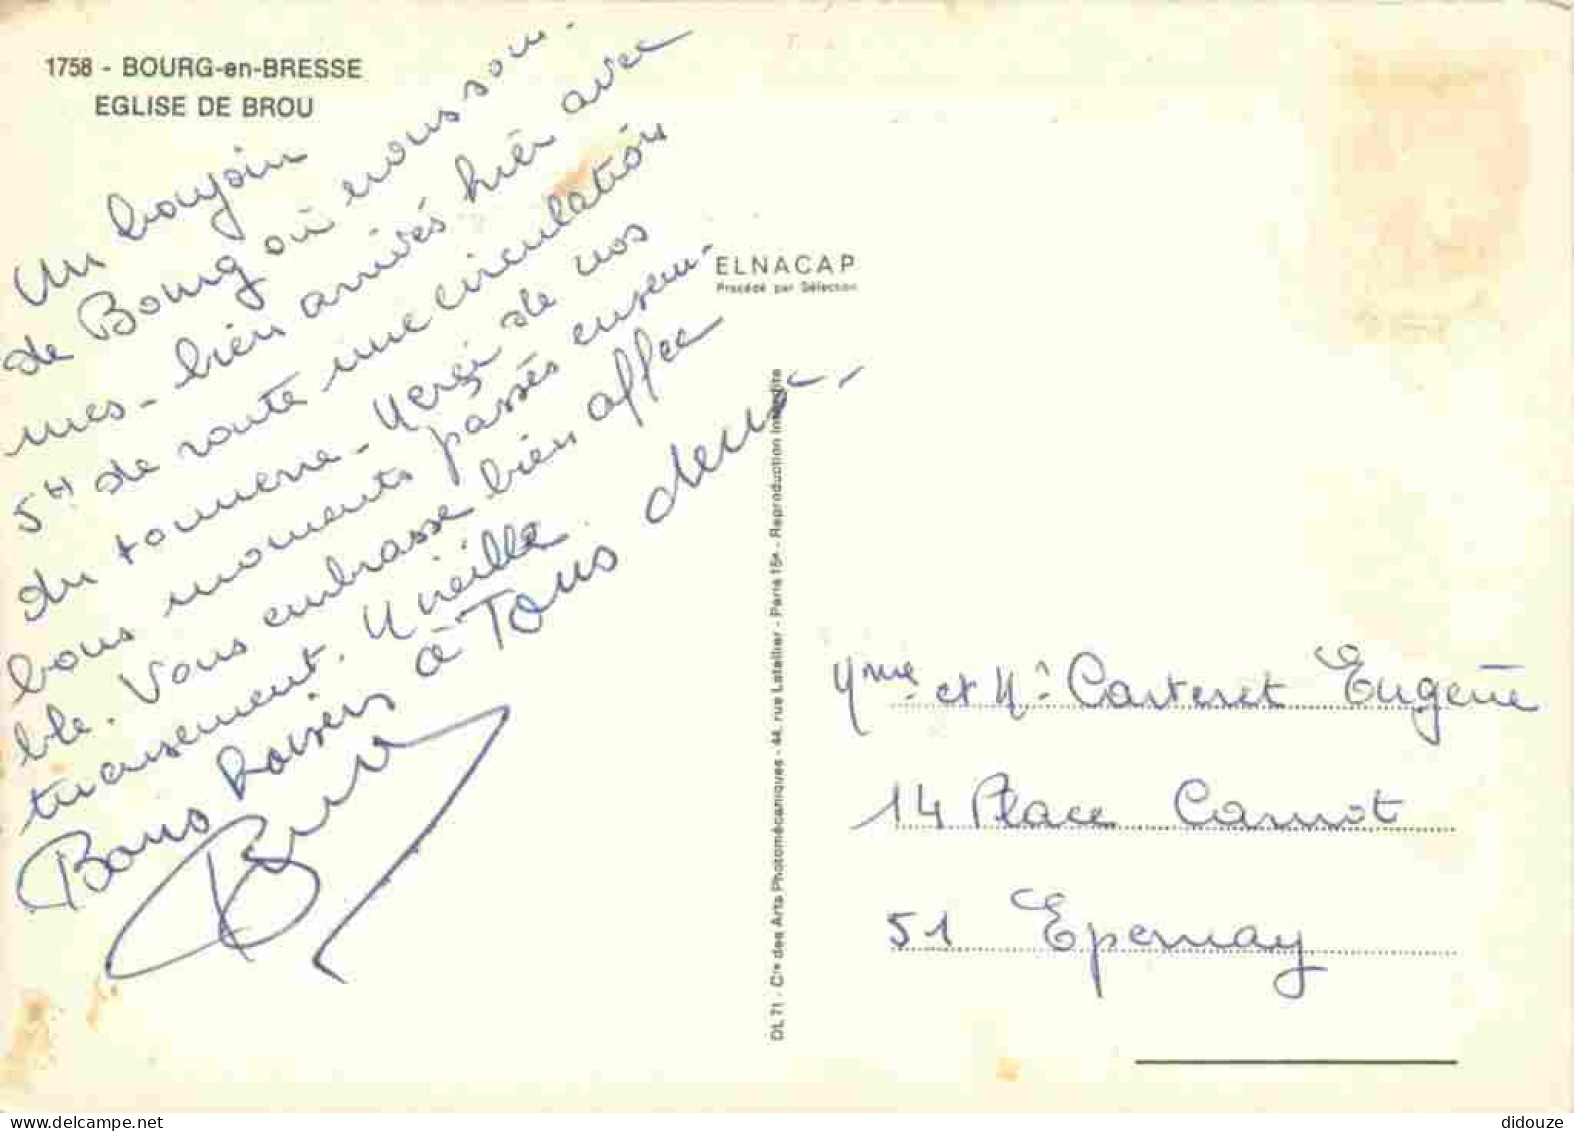 1758 - BOURG-en-BRESSE
EGLISE DE BROU
Un boujoin
de Bourg où nous som-
mes - bien arrivés hièr avec
5H de route une circulation
du tonnerre - Merçi de nos
bons moments passés ensem-
ble. Vous embrasse bien affec
tueusement. Mireille.
Bons baisers à Tous deux
ELNACAP
Procédé par Sélection
DL 71 - Cie des Arts Photomécaniques - 44, rue Letellier - Paris 15e - Reproduction Interdite
Mme et Mr Carteret Eugène
14 Place Carnot
51 Epernay
didouze